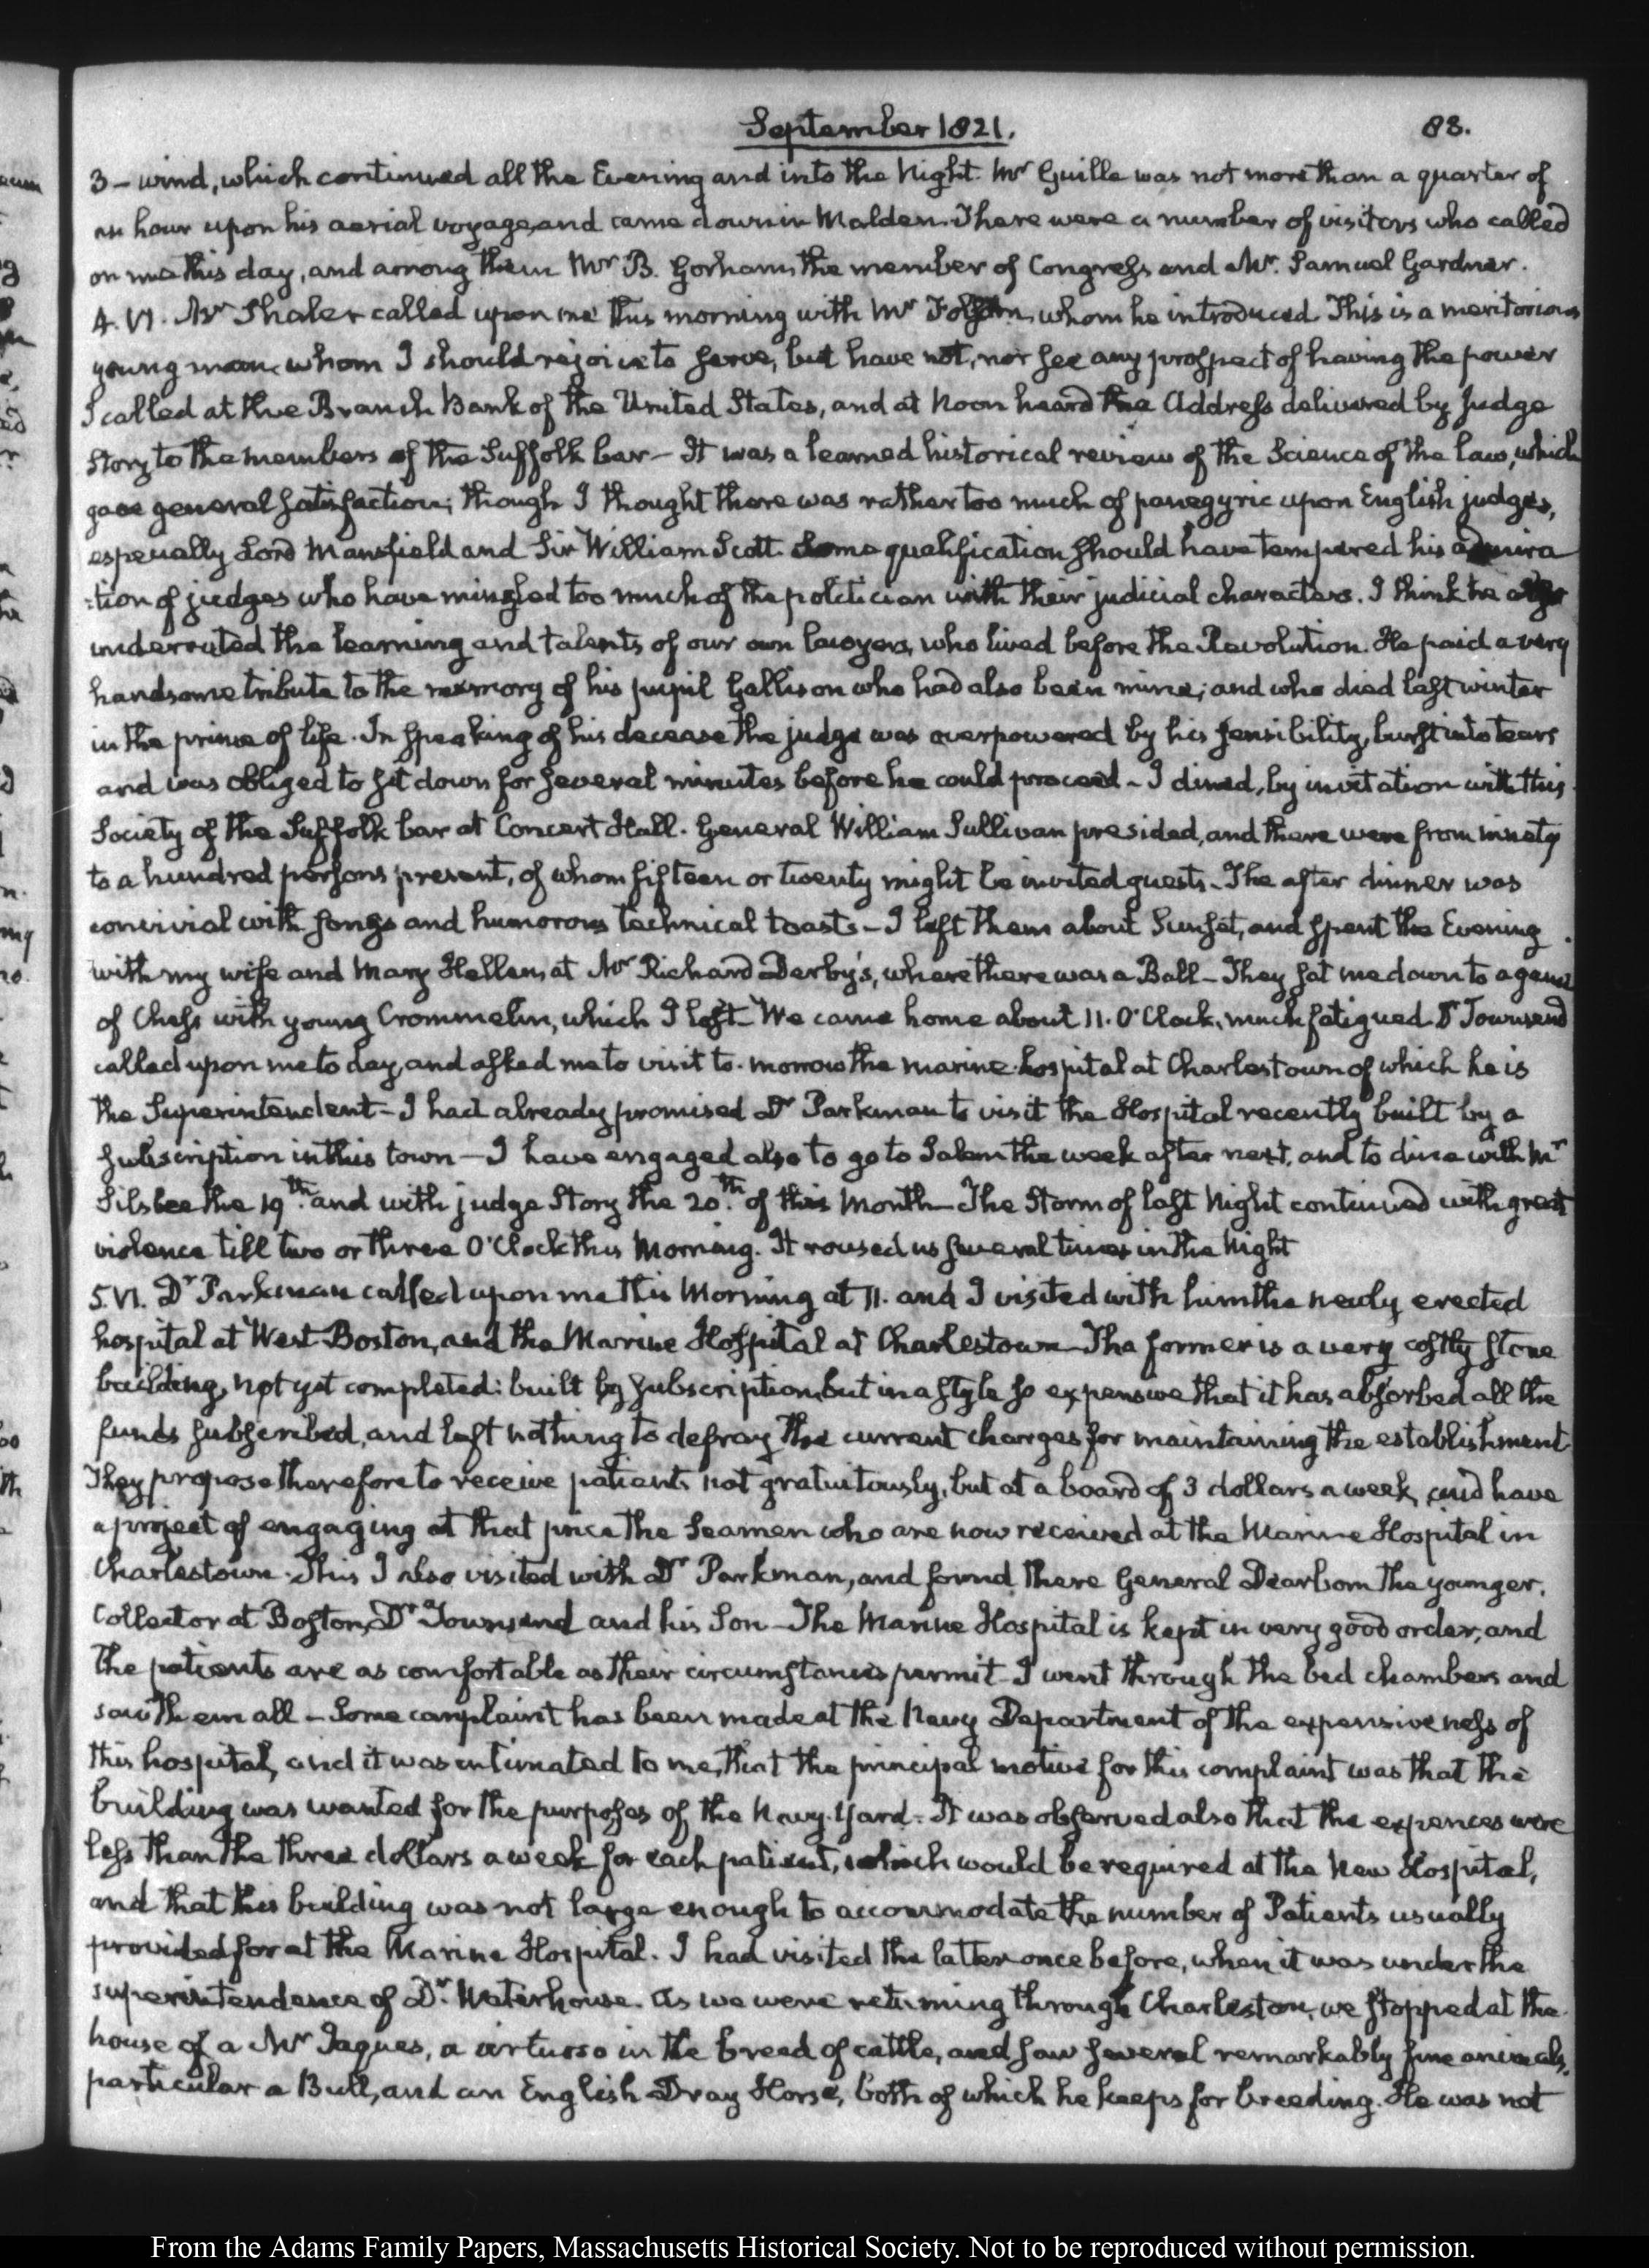 September 1821.
88.
3 – wind, which continued all the Evening and into the Night. Mr Guille was not more than a quarter of
an hour upon his aerial voyage, and came down in Malden. There were a number of visitors who called
on me this day, and among them Mr B. Gorham, the member of Congress and Mr. Samuel Gardner.
4. VI. Mr Shaler called upon me this morning with Mr Folsom, whom he introduced. This is a meritorious
young man whom I should rejoice to serve, but have not, nor see any prospect of having the power
I called at the Branch Bank of the United States, and at Noon heard the Address delivered by judge
Story to the members of the Suffolk bar – It was a learned historical review of the Science of the law, which
gave general satisfaction; though I thought there was rather too much of panegyric upon English judges,
especially Lord Mansfield and Sir William Scott. Some qualification should have tempered his admira
:tion of judges who have mingled too much of the politician with their judicial characters. I think he also
underrated the learning and talents of our own lawyers, who lived before the Revolution. He paid a very
handsome tribute to the memory of his pupil Gallison who had also been mine; and who died last winter
in the prime of life. In speaking of his decease the judge was overpowered by his sensibility, burst into tears
and was obliged to sit down for several minutes before he could proceed – I dined, by invitation with this
Society of the Suffolk bar at Concert Hall. General William Sullivan presided, and there were from ninety
to a hundred persons present, of whom fifteen or twenty might be invited guests – The after dinner was
convivial with songs and humorous technical toasts – I left them about Sunset, and spent the Evening
with my wife and Mary Hellen, at Mr Richard Derby's, where there was a Ball – They sat me down to a game
of Chess with young Crommelin, which I lost – We came home about 11. O'Clock, much fatigued. Dr Townsend
called upon me to day, and asked me to visit to-morrow the marine hospital at Charlestown of which he is
the Superintendent – I had already promised Dr Parkman to visit the Hospital recently built by a
subscription in this town – I have engaged also to go to Salem the week after next, and to dine with Mr
Silsbee the 19th. and with judge Story the 20th. of this Month – The Storm of last Night continued with great
violence till two or three O'Clock this Morning. It roused us several times in the Night
5. VI. Dr Parkman called upon me this Morning at 11. and I visited with him the newly erected
hospital at West-Boston, and the Marine Hospital at Charlestown – The former is a very costly stone
building, not yet completed: built by subscription, but in a style so expensive that it has absorbed all the
funds subscribed, and left nothing to defray the current charges for maintaining the establishment
They propose therefore to receive patients not gratuitously, but at a board of 3 dollars a week, and have
a project of engaging at that price the Seamen who are now received at the Marine Hospital in
Charlestown. This I also visited with Dr Parkman, and found there General Dearborn the younger,
Collector at Boston, Dr Townsend and his Son – The Marine Hospital is kept in very good order, and
the patients are as comfortable as their circumstances permit – I went through the bed chambers and
saw them all – Some complaint has been made at the Navy Department of the expensiveness of
this hospital, and it was intimated to me, that the principal motive for this complaint was that the
building was wanted for the purposes of the Navy-Yard. It was observed also that the expences were
less than the three dollars a week for each patient, which would be required at the New Hospital,
and that this building was not large enough to accommodate the number of Patients usually
provided for at the Marine Hospital. I had visited the latter once before, when it was under the
superintendence of Dr. Waterhouse. As we were returning through Charleston, we stopped at the
house of a Mr Jaques, a virtuoso in the breed of cattle, and saw several remarkably fine animals,
particular a Bull, and an English Dray Horse, both of which he keeps for breeding. He was not
From the Adams Family Papers, Massachusetts Historical Society. Not to be reproduced without permission.